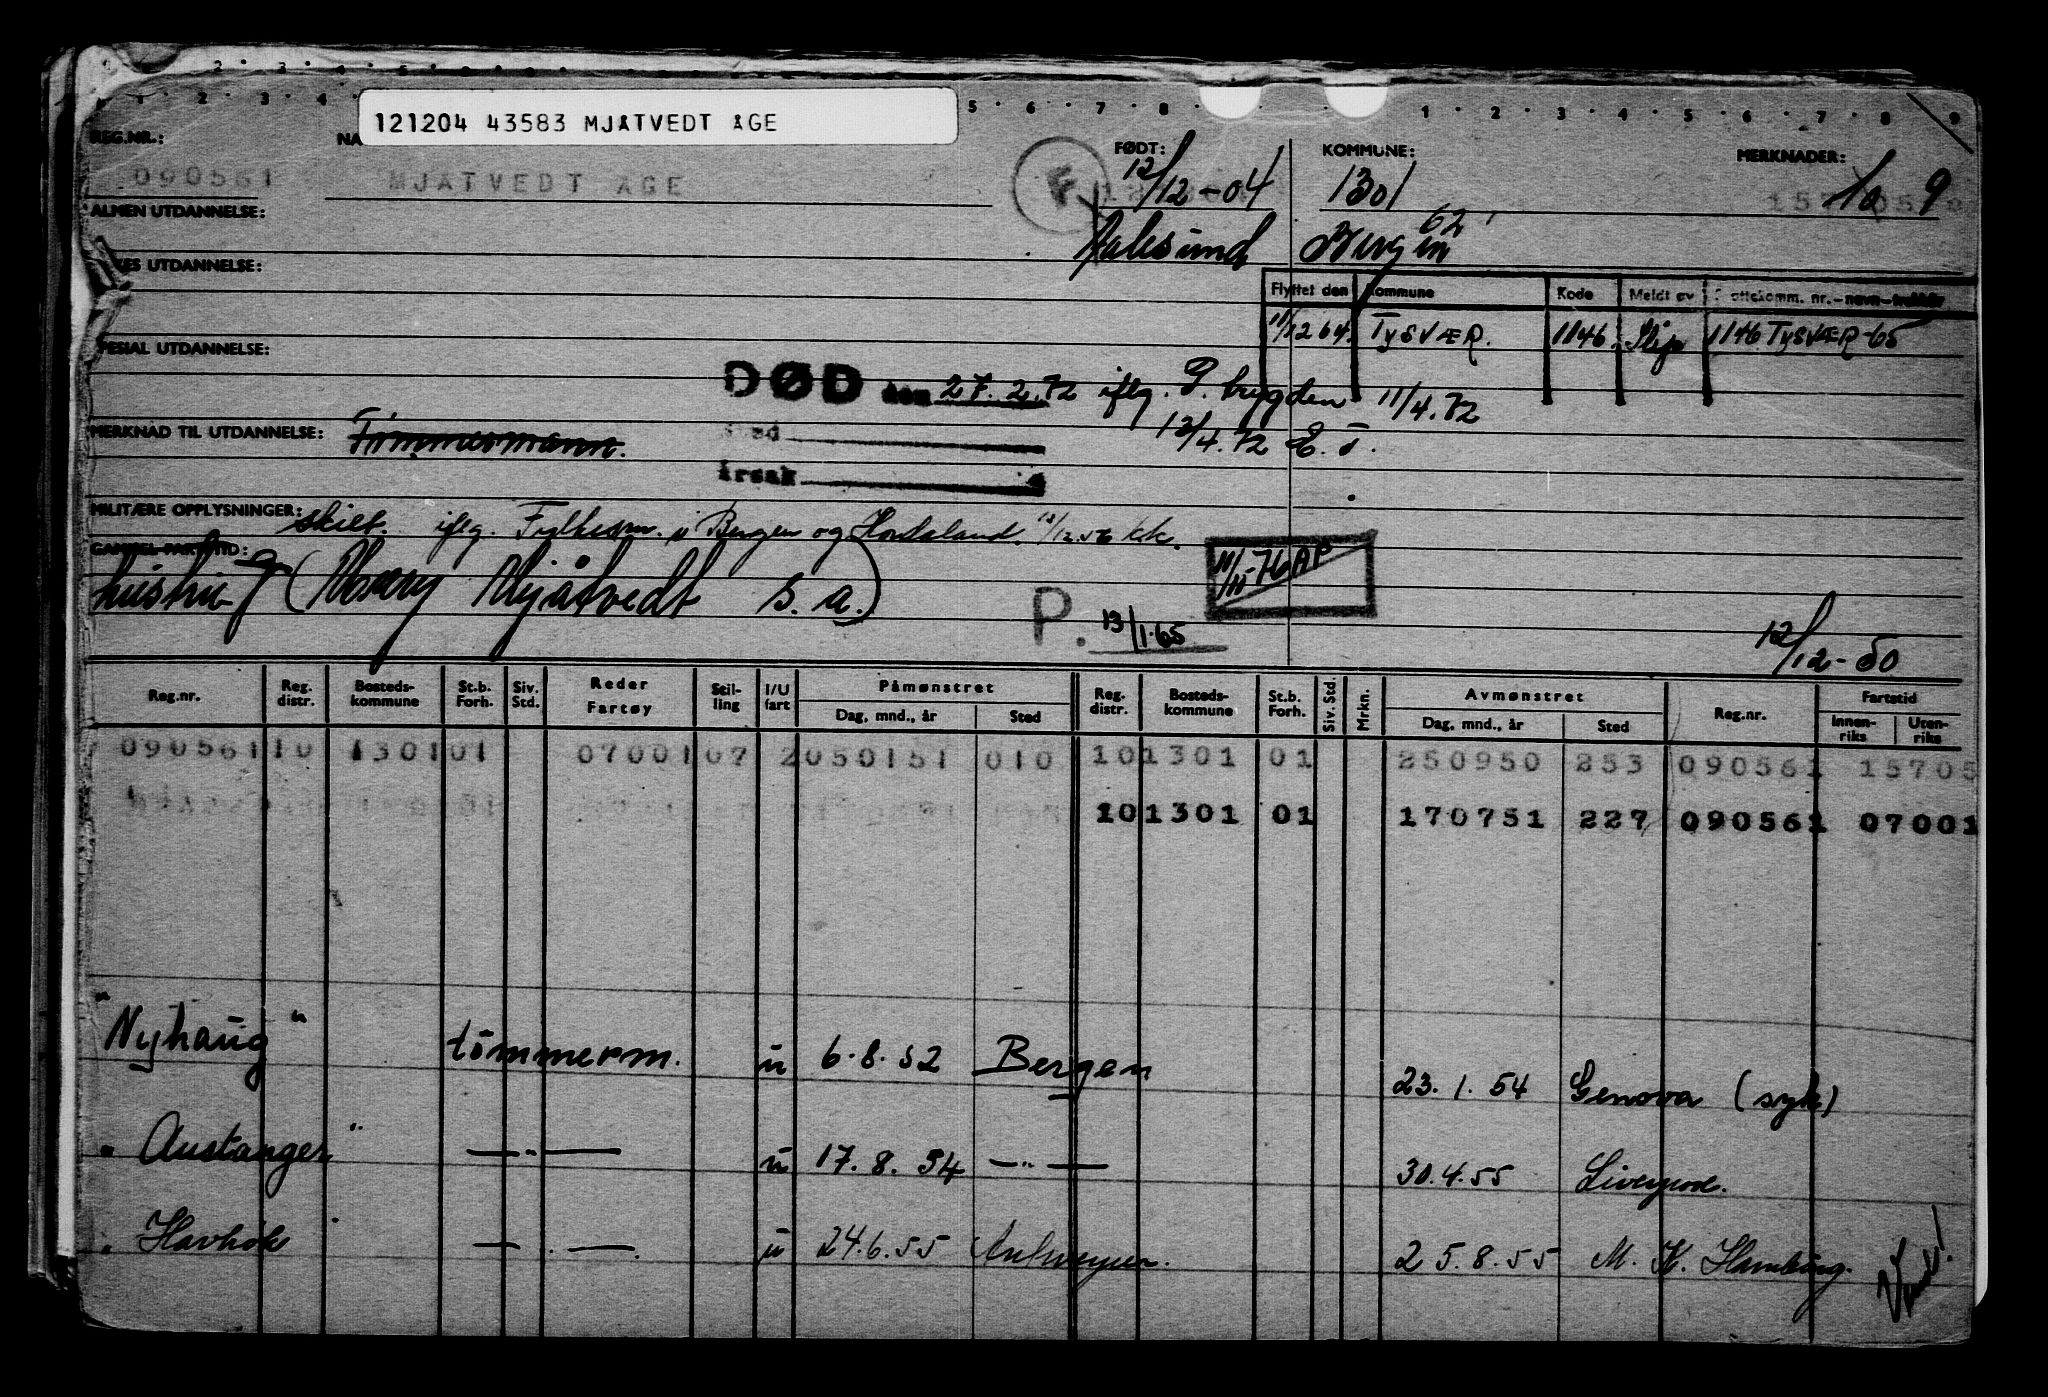 121204 43583 MJÅTVEDT ÅGE
REG.NR.: FØDT: KOMMUNE: MERKNADER:
090561 MJÅTVEDT ÅGE 12/12-04 1301 9
ALMEN UTDANNELSE: Aalesund Bergen 62
UTDANNELSE:
Flyttet den Kommune Kode Meldt av
11/12 64. TYSVÆR. 1146. Skjø 1146 TYSVÆR-65
SPESIAL UTDANNELSE:
DØD den 27.2.72 iflg. 11/4.72
MERKNAD TIL UTDANNELSE: Tømmermann. Sted 12/4.72
årsak
MILITÆRE OPPLYSNINGER: skilt. iflg. Fylkesm. i Bergen og Hordaland. KK.
GAMMEL FARTSTID:
hustru g (Mary Mjåtvedt s.a.) 11/11-76 AP
P. 13/1.65 12/12-50
Reg.nr. Reg. distr. Bosteds-kommune St.b. Forh. Siv. Std. Reder Fartøy Stil-ling I/U fart Påmønstret Dag, mnd., år Sted Reg. distr. Bosteds-kommune St.b. Forh. Siv. Std. Mrkn. Avmønstret Dag, mnd., år Sted Reg.nr. Fartstid Innen-riks Uten-riks
090561 10 1301 01 07001 07 2 050151 010 10 1301 01 250950 253 090561 15705
10 1301 01 170751 227 090561 07001
"Nyhaug" tömmerm. u 6.8.52 Bergen 23.1.54 Genova (syk)
"Austanger" —"— u 17.8.54 —"— 30.4.55 Liverpool.
"Havhok" —"— u 24.6.55 Antwerpen. 25.8.55 M. K. Hamburg.
Vend!